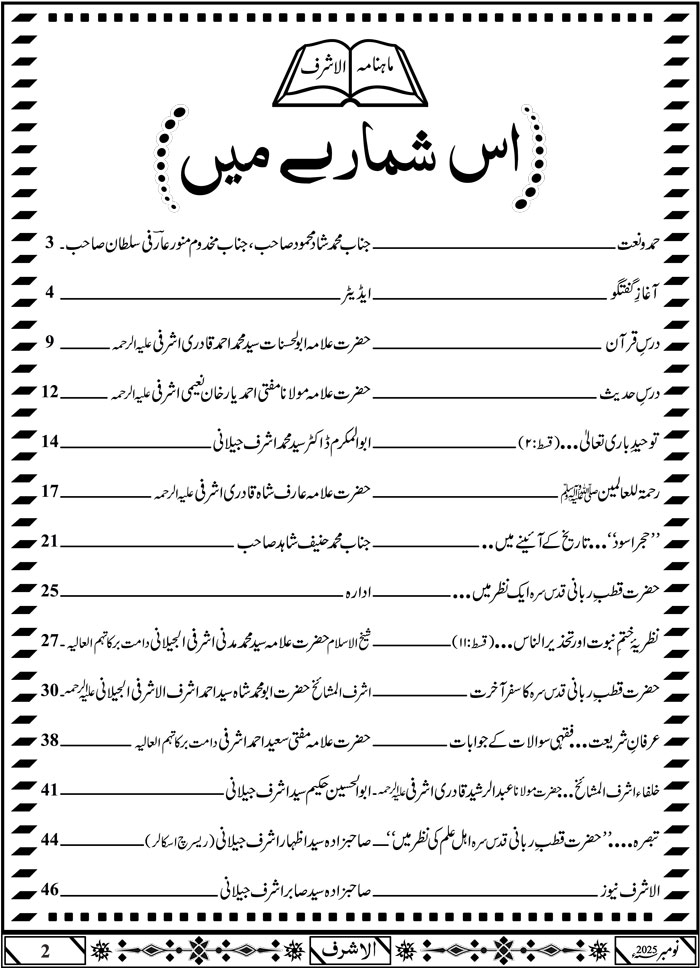 ماہنامہ الاشرف
اس شمارے میں
حمد ونعت ـــــ جناب محمد شاد محمود صاحب، جناب مخدوم منور عارفی سلطان صاحب۔ 3
آغازِ گفتگو ـــــ ایڈیٹر ـــــ 4
درسِ قرآن ـــــ حضرت علامہ ابوالحسنات سید محمد احمد قادری اشرفی علیہ الرحمہ ـــــ 9
درسِ حدیث ـــــ حضرت علامہ مولانا مفتی احمد یار خان نعیمی اشرفی علیہ الرحمہ ـــــ 12
توحیدِ باری تعالٰی... (قسط:۲) ـــــ ابوالمکرم ڈاکٹر سید محمد اشرف جیلانی ـــــ 14
رحمۃ للعالمین ﷺ ـــــ حضرت علامہ عارف شاہ قادری اشرفی علیہ الرحمہ ـــــ 17
’’حجر اسود‘‘... تاریخ کے آئینے میں.. ـــــ جناب محمد حنیف شاہد صاحب ـــــ 21
حضرت قطبِ ربانی قدس سرہ ایک نظر میں... ـــــ ادارہ ـــــ 25
نظریۂ ختمِ نبوت اور تحذیر الناس... (قسط:۱۱) ـــــ شیخ الاسلام حضرت علامہ سید محمد مدنی اشرفی الجیلانی دامت برکاتہم العالیہ۔ 27
حضرت قطبِ ربانی قدس سرہ کا سفرِ آخرت ـــــ اشرف المشائخ حضرت ابو محمد شاہ سید احمد اشرف الاشرفی الجیلانی علیہ الرحمہ۔ 30
عرفانِ شریعت... فقہی سوالات کے جوابات ـــــ حضرت علامہ مفتی سعید احمد اشرفی دامت برکاتہم العالیہ ـــــ 38
خلفاء اشرف المشائخ.. حضرت مولانا عبدالرشید قادری اشرفی علیہ الرحمہ۔ ابوالحسین حکیم سید اشرف جیلانی ـــــ 41
تبصرہ....’’حضرت قطبِ ربانی قدس سرہ اہل علم کی نظر میں‘‘ ـــــ صاحبزادہ سید اظہار اشرف جیلانی (ریسرچ اسکالر) ـــــ 44
الاشرف نیوز ـــــ صاحبزادہ سید صابر اشرف جیلانی ـــــ 46
نومبر 2025ء الاشرف 2